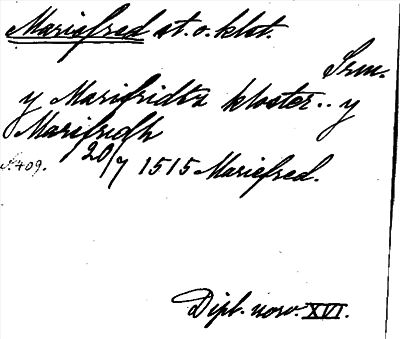 Mariefred st. o. klst.
Srm.
y Marifridtz kloster .. y
Marifridh
s. 409. 20/7 1515 Mariefred.
Dipl. norv. XVI.